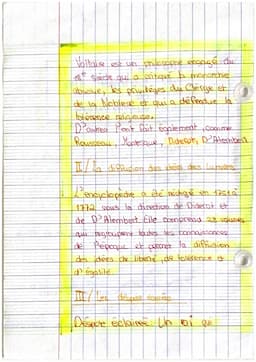 Voltaire est un philosophe engagé du
18e siècle qui a critiqué la monarchie
absolue, les privilèges du Clergé et
de la Noblesse et qui a défendue la
tolérance religieuse.
D'autres l'ont fait également, comme
Rousseau, Montesquie, Diderot, D'Alembert
II/ la diffusion des idées des Lumières
L'encyclopédie a été rédigé en 1751 à
1772 sous la direction de Diderot et
de D'Alembert. Elle comprend 28 volumes
qui regroupent toutes les connaissances
de l'époque et permet la diffusion
des idées de liberté, de tolérance et
d'égalité
III/ Les despotes éclairés
Despote éclairée: Un roi qui